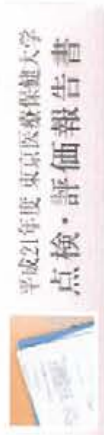 平成21年度 東京医療保健大学
点検・評価報告書